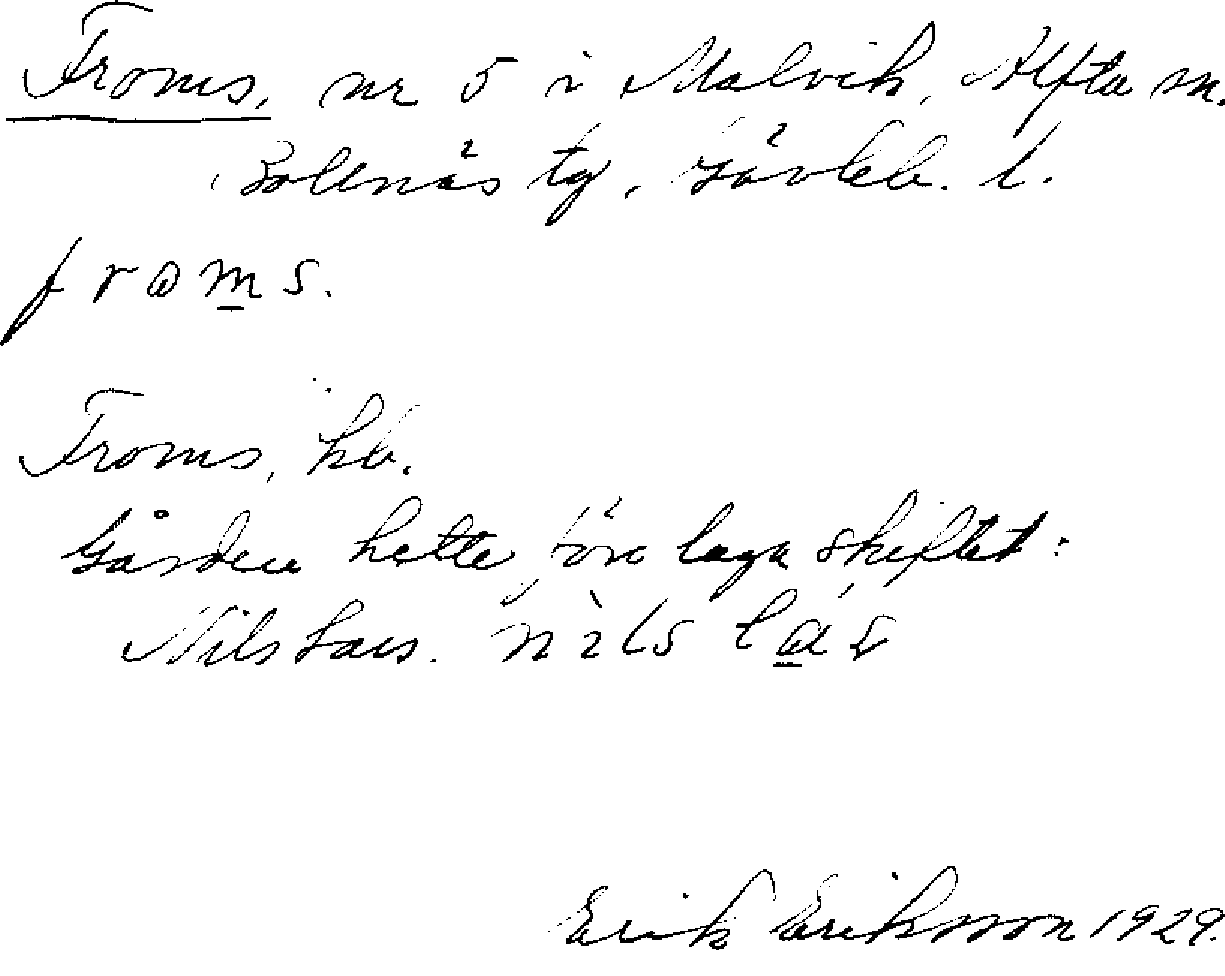 Froms, nr 5 i Malvik, Alfta sn.
Bollnäs tg, Gävleb. l.
froms.
Froms, hb.
Gården hette före laga skiftet:
Nils Lars. nìls
Erik Eriksson 1929.